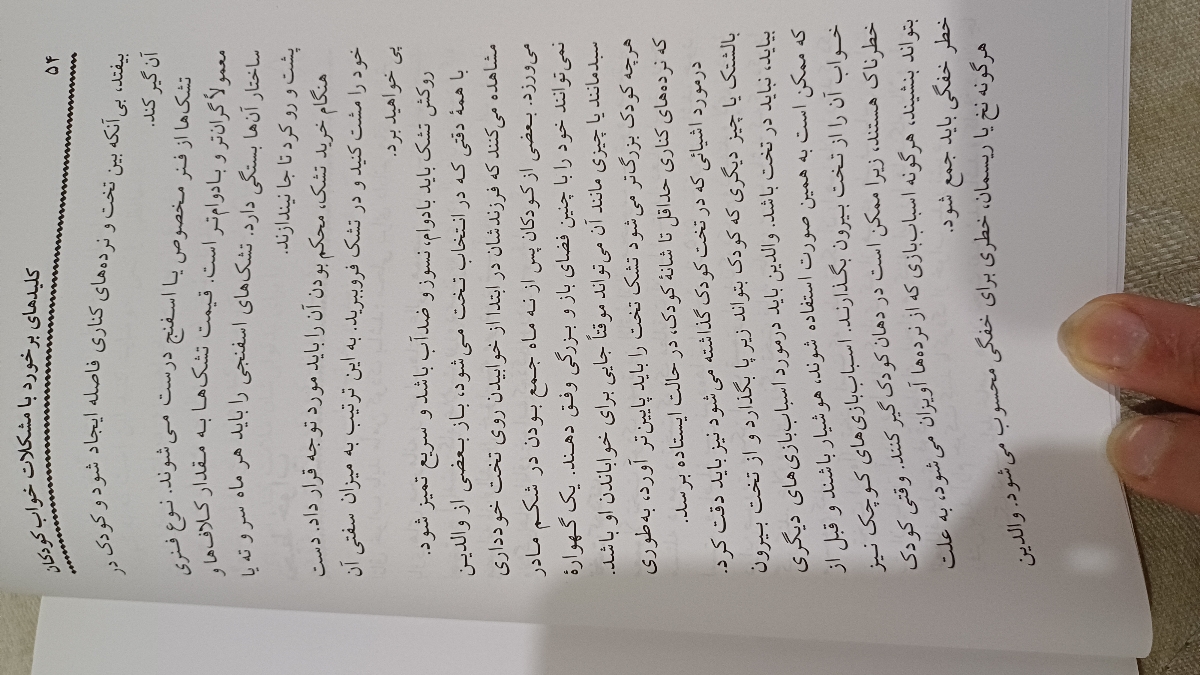 ۵۴ کلیدهای برخورد با مشکلات خواب کودکان
بیفتد، بی‌آنکه بین تخت و نرده‌های کناری فاصله ایجاد شود و کودک در
آن گیر کند.
تشک‌ها از فنر مخصوص یا اسفنج درست می‌شوند. نوع فنری
معمولاً گران‌تر و بادوام‌تر است. قیمت تشک‌ها به مقدار کلاف‌ها و
ساختار آن‌ها بستگی دارد. تشک‌های اسفنجی را باید هر ماه سر و ته یا
پشت و رو کرد تا جا نیندازند.
هنگام خرید تشک، محکم بودن آن را باید مورد توجه قرار داد. دست
خود را مشت کنید و در تشک فروببرید. به این ترتیب به میزان سفتی آن
پی خواهید برد.
روکش تشک باید بادوام، نسوز و ضدآب باشد و سریع تمیز شود.
با همهٔ دقتی که در انتخاب تخت می‌شود، باز بعضی از والدین
مشاهده می‌کنند که فرزندشان در ابتدا از خوابیدن روی تخت خودداری
می‌ورزد. بعضی از کودکان پس از نه ماه جمع بودن در شکم مادر
نمی‌توانند خود را با چنین فضای باز و بزرگی وفق دهند. یک گهوارهٔ
سبدمانند یا چیزی مانند آن می‌تواند موقتاً جایی برای خواباندن او باشد.
هرچه کودک بزرگ‌تر می‌شود تشک تخت را باید پایین‌تر آورد، به‌طوری
که نرده‌های کناری حداقل تا شانهٔ کودک، در حالت ایستاده برسد.
درمورد اشیائی که در تخت کودک گذاشته می‌شود نیز باید دقت کرد.
بالشتک یا چیز دیگری که کودک بتواند زیر پا بگذارد و از تخت بیرون
بیاید، نباید در تخت باشد. والدین باید درمورد اسباب‌بازی‌های دیگری
که ممکن است به همین صورت استفاده شوند، هوشیار باشند و قبل از
خواب آن را از تخت بیرون بگذارند. اسباب‌بازی‌های کوچک نیز
خطرناک هستند، زیرا ممکن است در دهان کودک گیر کنند. وقتی کودک
بتواند بنشیند، هرگونه اسباب‌بازی که از نرده‌ها آویزان می‌شود، به علت
خطر خفگی باید جمع شود.
هرگونه نخ یا ریسمان، خطری برای خفگی محسوب می‌شود. والدین